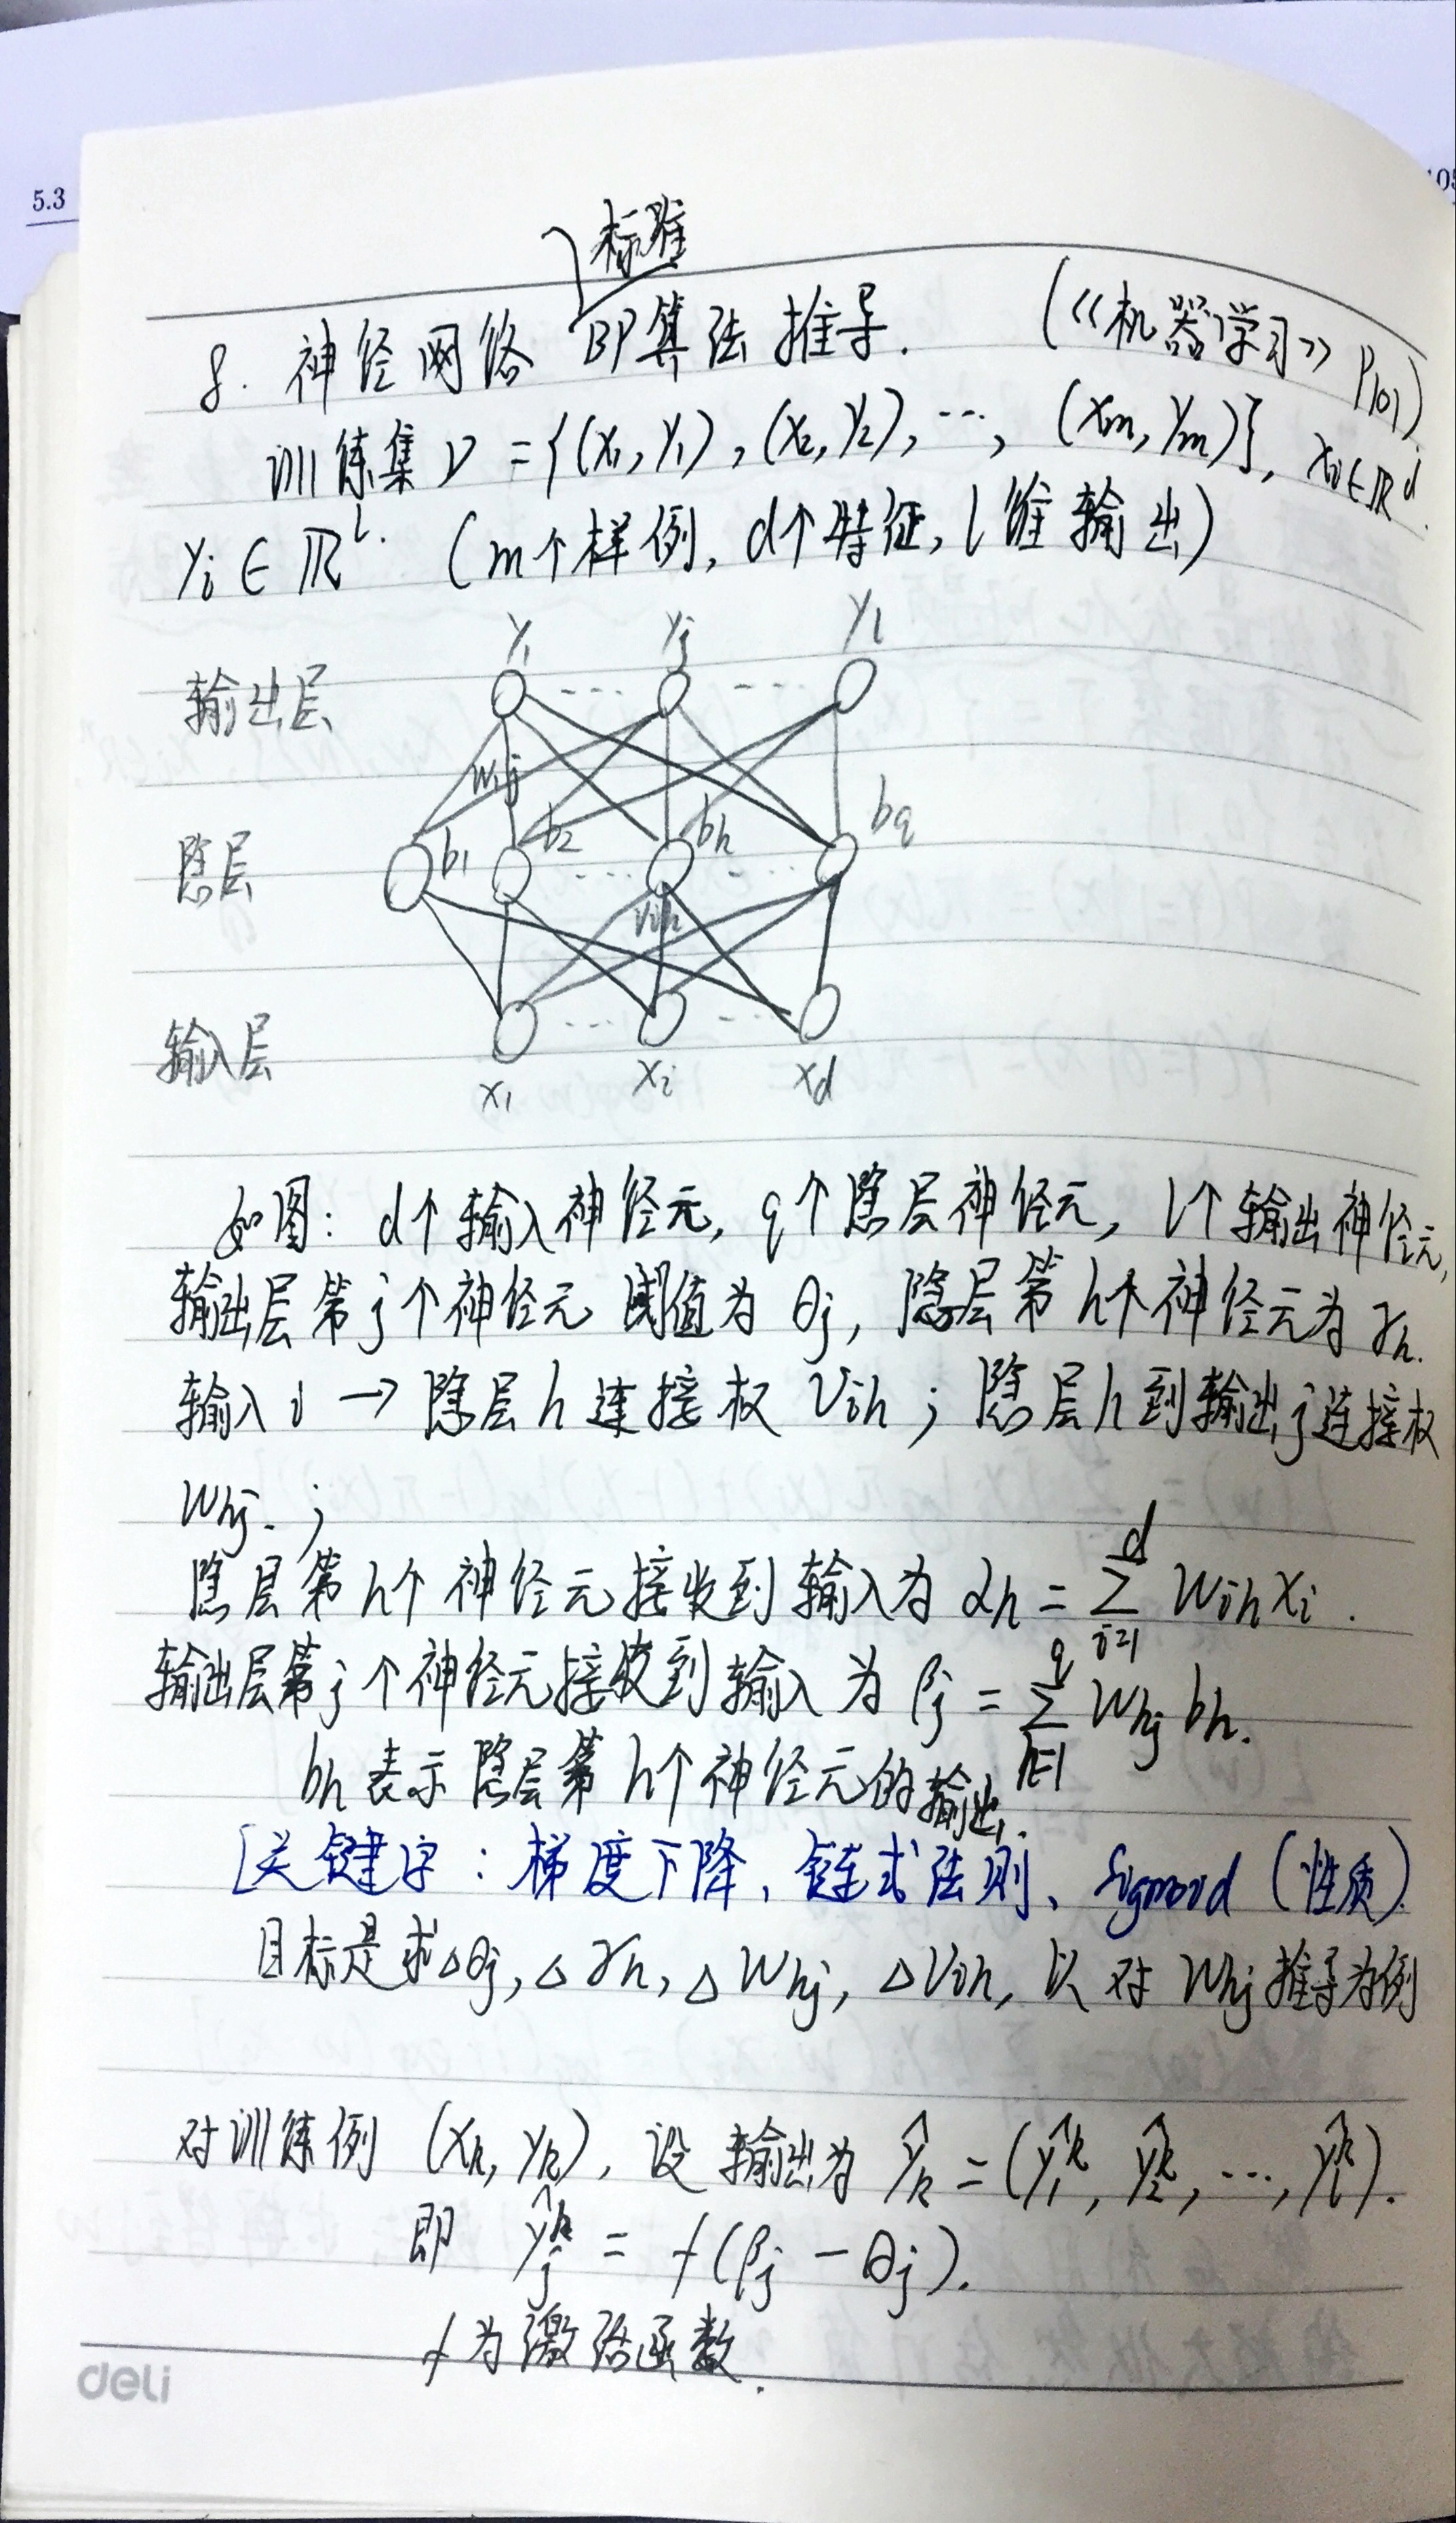 5.3
105
标准
8. 神经网络 BP算法推导. (《机器学习》 P101)
训练集 D = {(x₁, y₁), (x₂, y₂), ..., (xm, ym)}, xi∈ℝᵈ.
yi ∈ ℝˡ. (m个样例, d个特征, l维输出)
y₁ yj yl
输出层
whj
隐层 b₁ b₂ bh bq
vih
输入层
x₁ xi xd
如图: d个输入神经元, q个隐层神经元, l个输出神经元,
输出层第j个神经元阈值为θj, 隐层第h个神经元为γh.
输入i → 隐层h连接权 vih ; 隐层h到输出j连接权
whj. ;
隐层第h个神经元接收到输入为 αh = ∑_{i=1}^{d} wih xi .
输出层第j个神经元接收到输入为 βj = ∑_{h=1}^{q} whj bh.
bh表示隐层第h个神经元的输出.
[关键字: 梯度下降、链式法则、Sigmoid (性质).
目标是求△θj, △γh, △whj, △vih, 以对whj推导为例
对训练例 (xk, yk), 设输出为 ŷk = (ŷ₁ᵏ, ŷ₂ᵏ, ..., ŷlᵏ).
即 ŷjᵏ = f(βj - θj).
f为激活函数.
deli